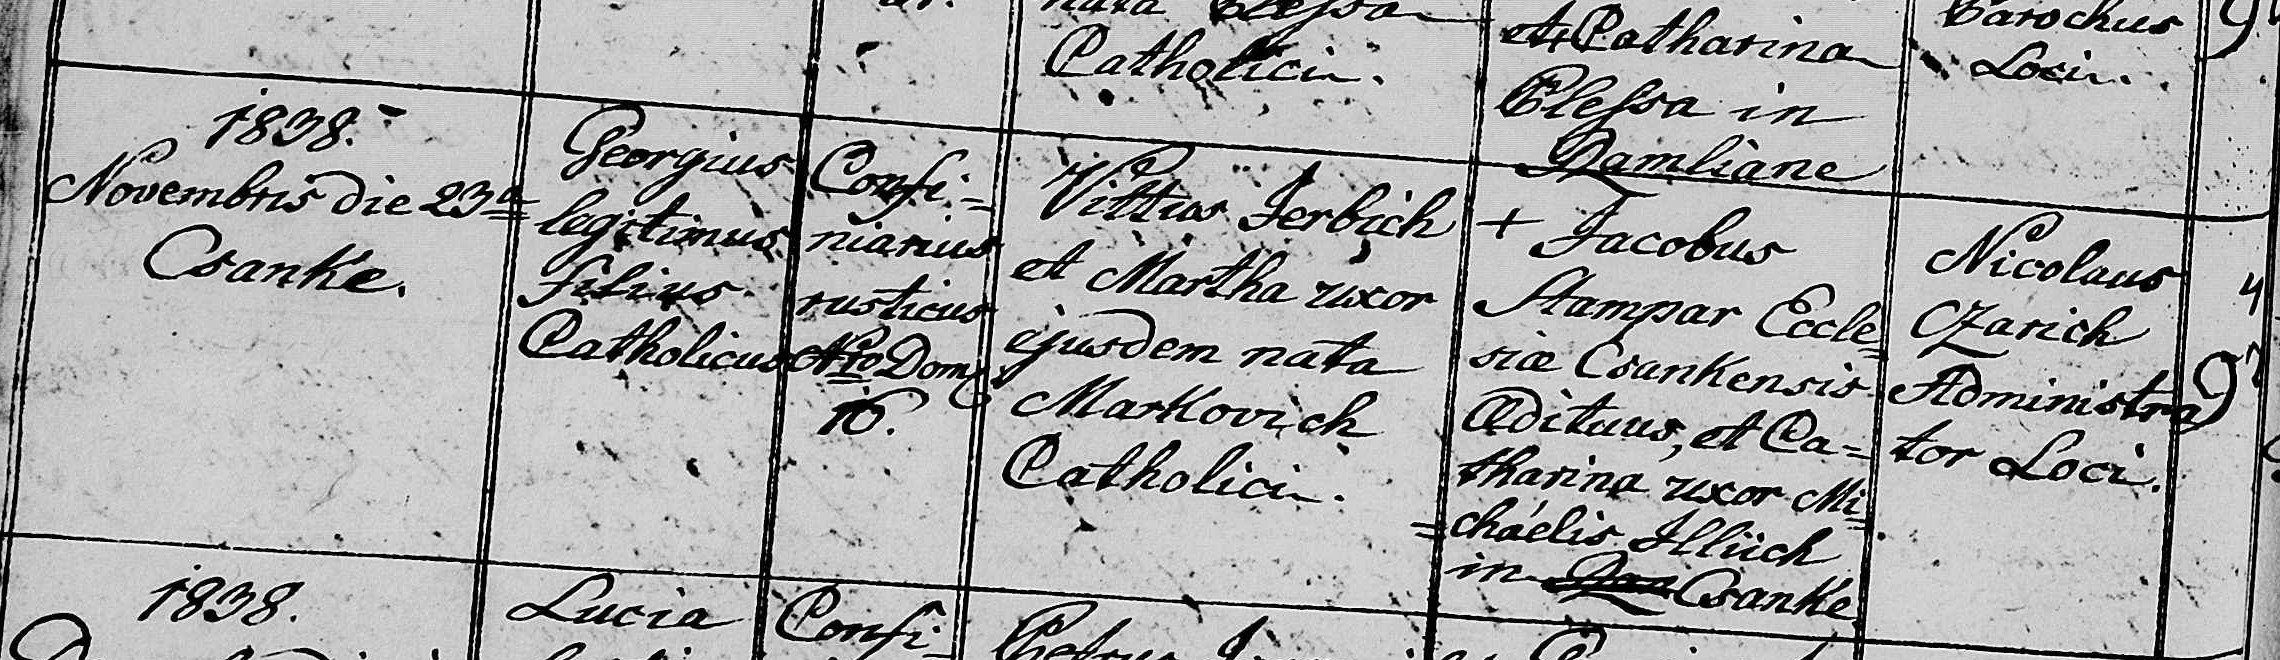 nata Plessa
Catholici.
et Catharina
Plessa in
Damliane
Parochus
Loci.
1838.
Novembris die 23ª
Csanke.
Georgius
legitimus
filius
Catholicus
Confi-
niarius
rusticus
Nro Dom
16.
Vittus Jerbich
et Martha uxor
ejusdem nata
Markovich
Catholici.
+ Jacobus
Stampar Eccle-
siæ Csankensis
Ædituus, et Ca-
tharina uxor Mi-
=chaelis Illiich
in Csanke
Nicolaus
Czarich
Administra
tor Loci.
4
1838.
Lucia
Confi-
Petrus